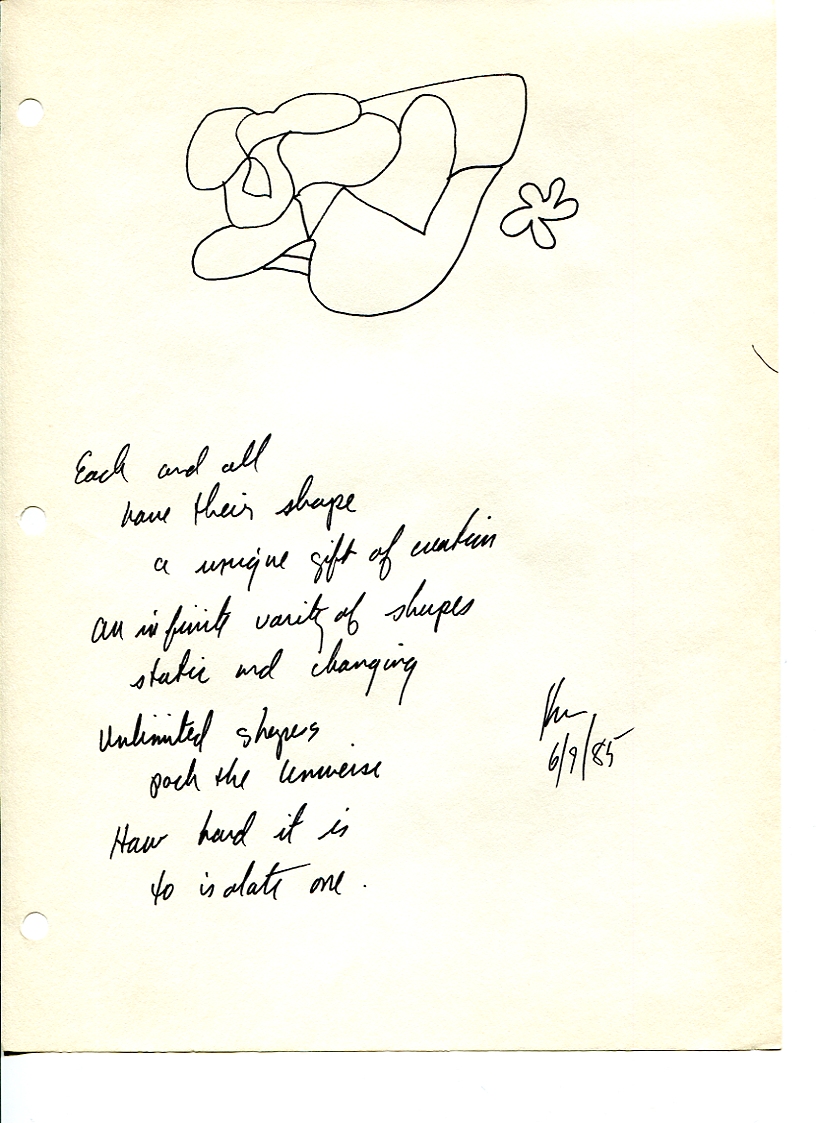 Each and all
have their shape
a unique gift of creation
An infinite varity of shapes
static and changing
Unlimited shapes
pack the Universe
How hard it is
to isolate one.
6/9/85